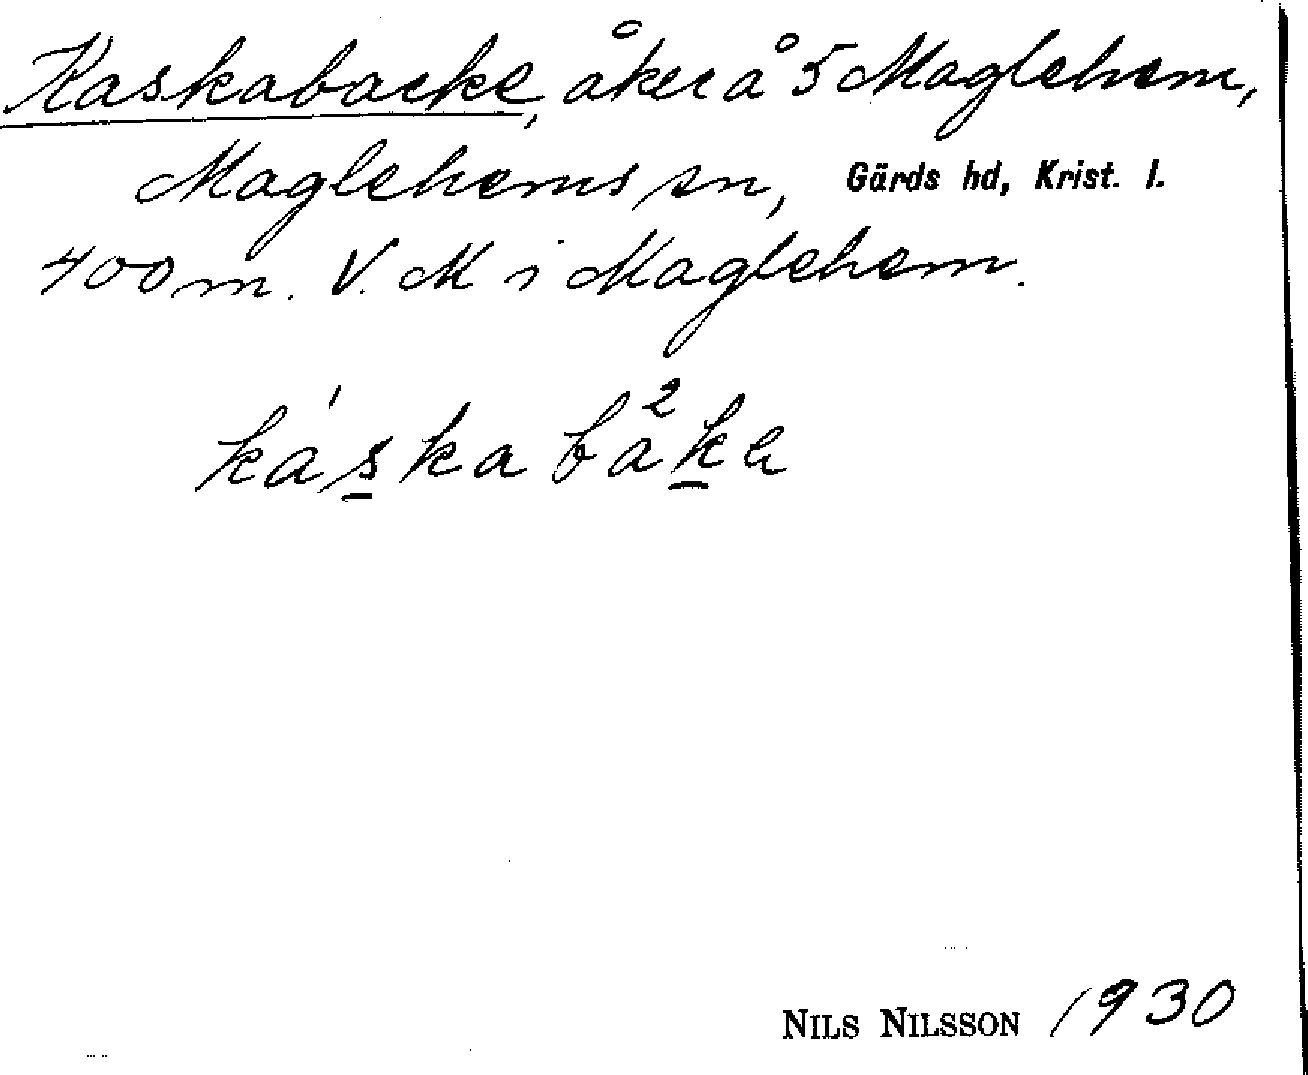 Kaskabacke, åker å 5 Maglehem,
Maglehems sn, Gärds hd, Krist. l.
400 m. V. M i Maglehem.
ka's̲ka ba²k̲a
NILS NILSSON 1930